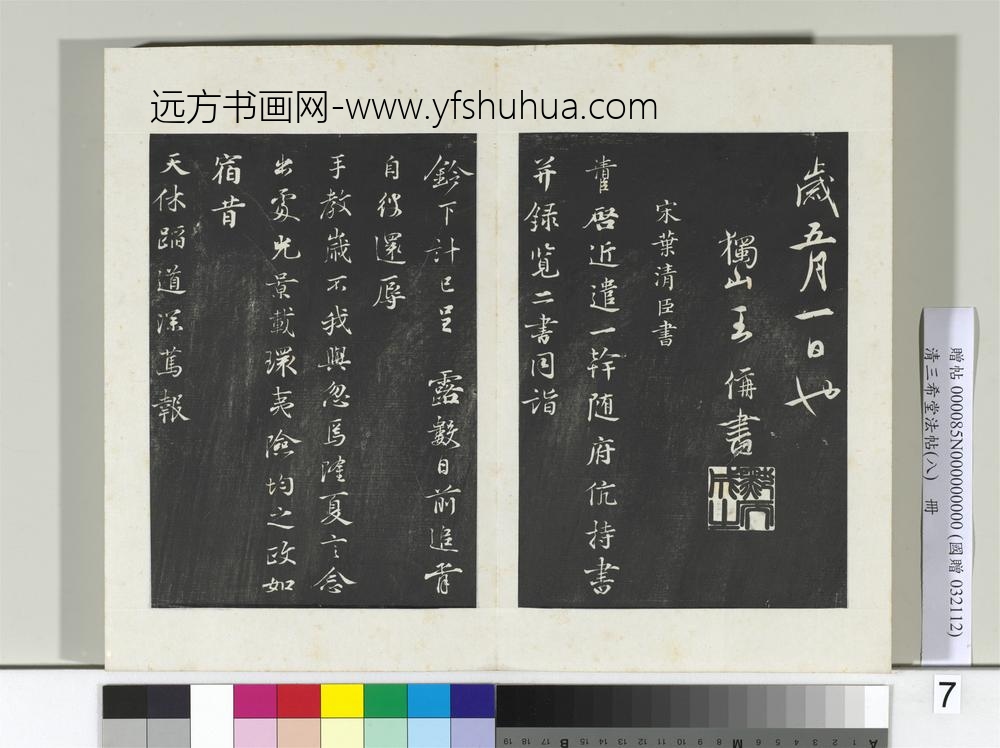 远方书画网-www.yfshuhua.com
歲五月一日也
獨山王儔書
宋葉清臣書
啓近遣一幹随府伉持書
并録览二書同詣
鈴下計已呈 露數日前追胥
自彼還辱
手教歲不我與忽焉隆夏言念
出處光景載環夷險均之政如
宿昔
天休蹈道深篤報
贈帖 000085N000000000 (國贈 032112)
清三希堂法帖(八) 冊
7